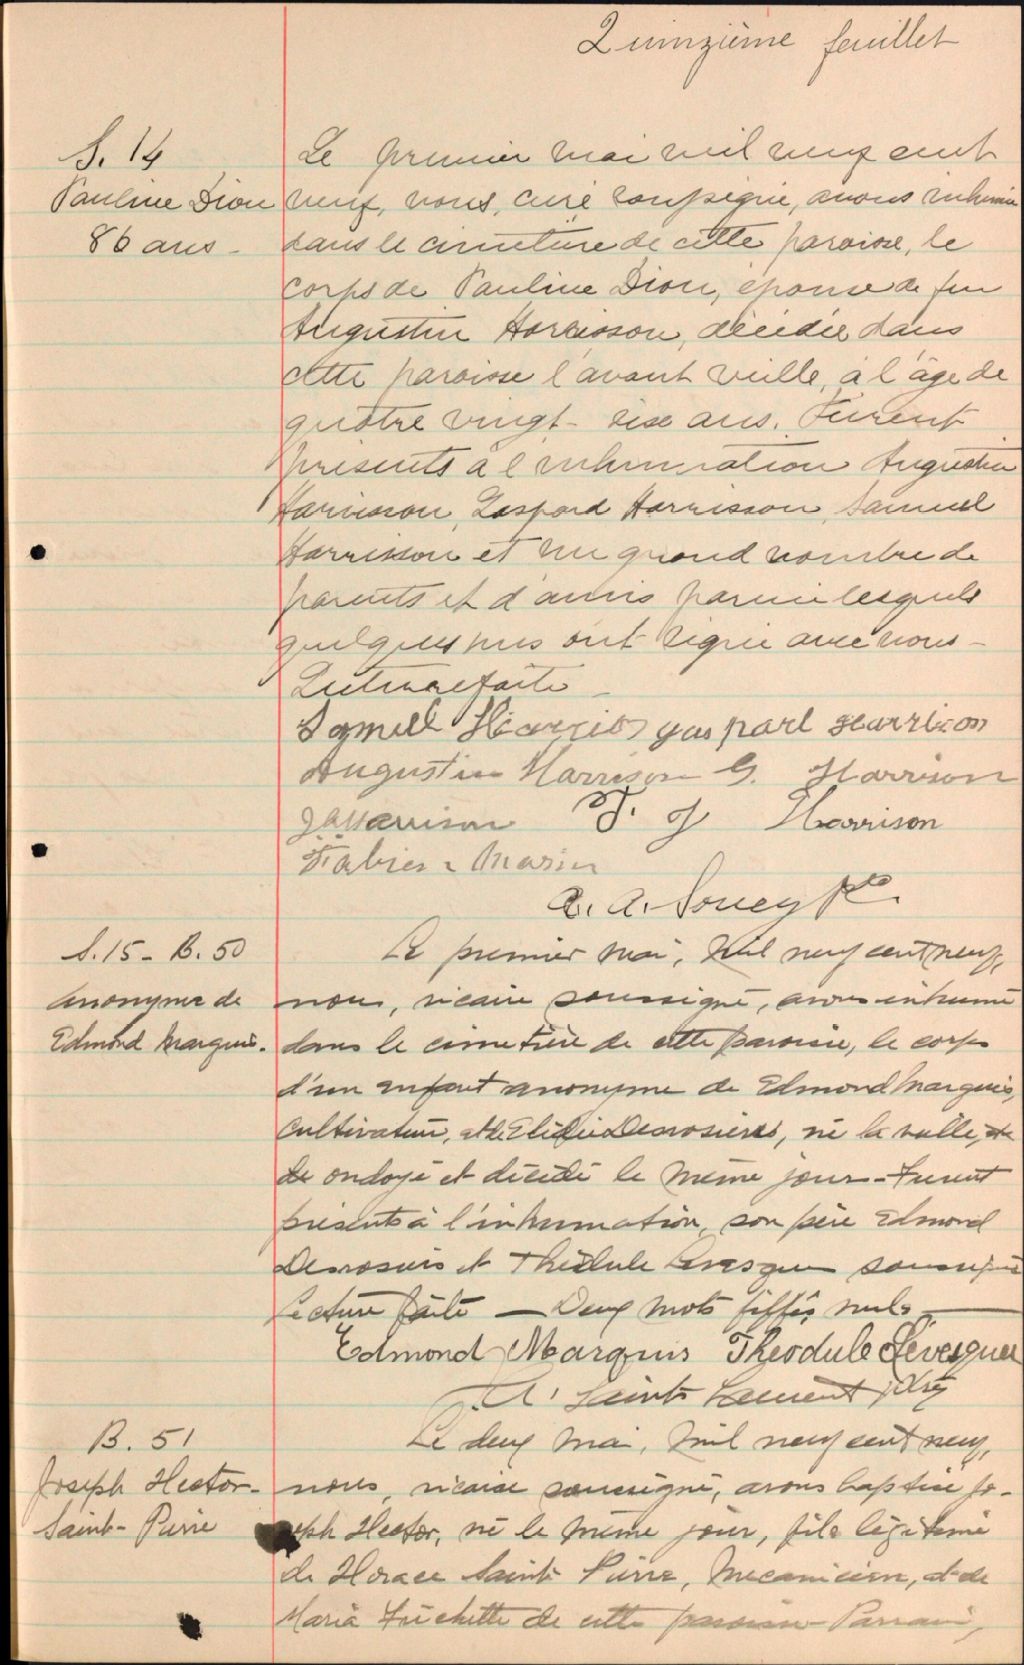 Quinzième feuillet
S. 14
Pauline Dion
86 ans -
Le premier mai mil neuf cent
neuf, nous, curé soussigné, avons inhumé
dans le cimetière de cette paroisse, le
corps de Pauline Dion, épouse de feu
Augustin Harrisson, décédée dans
cette paroisse l'avant veille, à l'âge de
quatre vingt - six ans. Furent
présents à l'inhumation Augustin
Harrisson, Gaspard Harrisson, Samuel
Harrisson et un grand nombre de
parents et d'amis parmi lesquels
quelques uns ont signé avec nous -
Lecture faite -
Samuel Harrison gasparl Harrison
Augustin Harrison G. Harrison
J A Harrison F. J Harrison
Fabien Marin
A. Soucy Ptr.
S. 15 - B. 50
Anonyme de
Edmond Marquis.
Le premier mai, mil neuf cent neuf,
nous, vicaire soussigné, avons inhumé
dans le cimetière de cette paroisse, le corps
d'un enfant anonyme de Edmond Marquis,
cultivateur, et de Desrosiers, né la veille, et
de ondoyé et décédé le même jour - Furent
présents à l'inhumation, son père Edmond
Desrosiers et Théodule Levesque soussignés
Lecture faite — Deux mots biffés nuls —
Edmond Marquis Théodule Levesque
A. Saint Laurent ptre
B. 51
Joseph Hector -
Saint - Pierre
Le deux mai, mil neuf cent neuf,
nous, vicaire soussigné, avons baptisé Jo-
seph Hector, né le même jour, fils légitime
de Horace Saint Pierre, mécanicien, et de
Maria Fréchette de cette paroisse - Parrain,